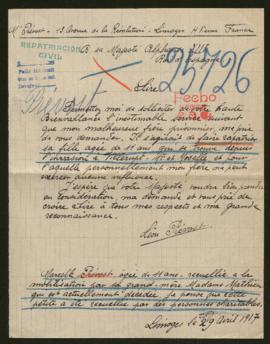 Mr Prévost - 13 Avenue de la Révolution - Limoges Hte Vienne France
à sa Majesté Alphonse XIII
Roi d'Espagne
REPATRIACION
CIVIL
25726
Prevost
Sire
Fecho
Permettez moi de solliciter de votre haute
Bienveillance l'inestimable service suivant
que mon malheureux frère prisonnier, me prie
de vous demander. Il s'agirait de faire rapatrier
sa fille âgée de 11 ans qui se trouve depuis
l'invasion à Mthe et Moselle et pour
laquelle personnellement mon frère ne peut
exercer aucune influence.
J'espère que votre Majesté voudra bien prendre
en considération ma demande et vous prie de
croire Sire à tous mes respects et ma grande
reconnaissance.
Léon Prévost
Marcelle Prévost âgée de 11 ans, recueillie à la
mobilisation par sa grand-mère Madame Mathieu
qui est actuellement décédée, je pense que cette
petite a été recueillie par des personnes charitables.
Limoges le 29 avril 1917